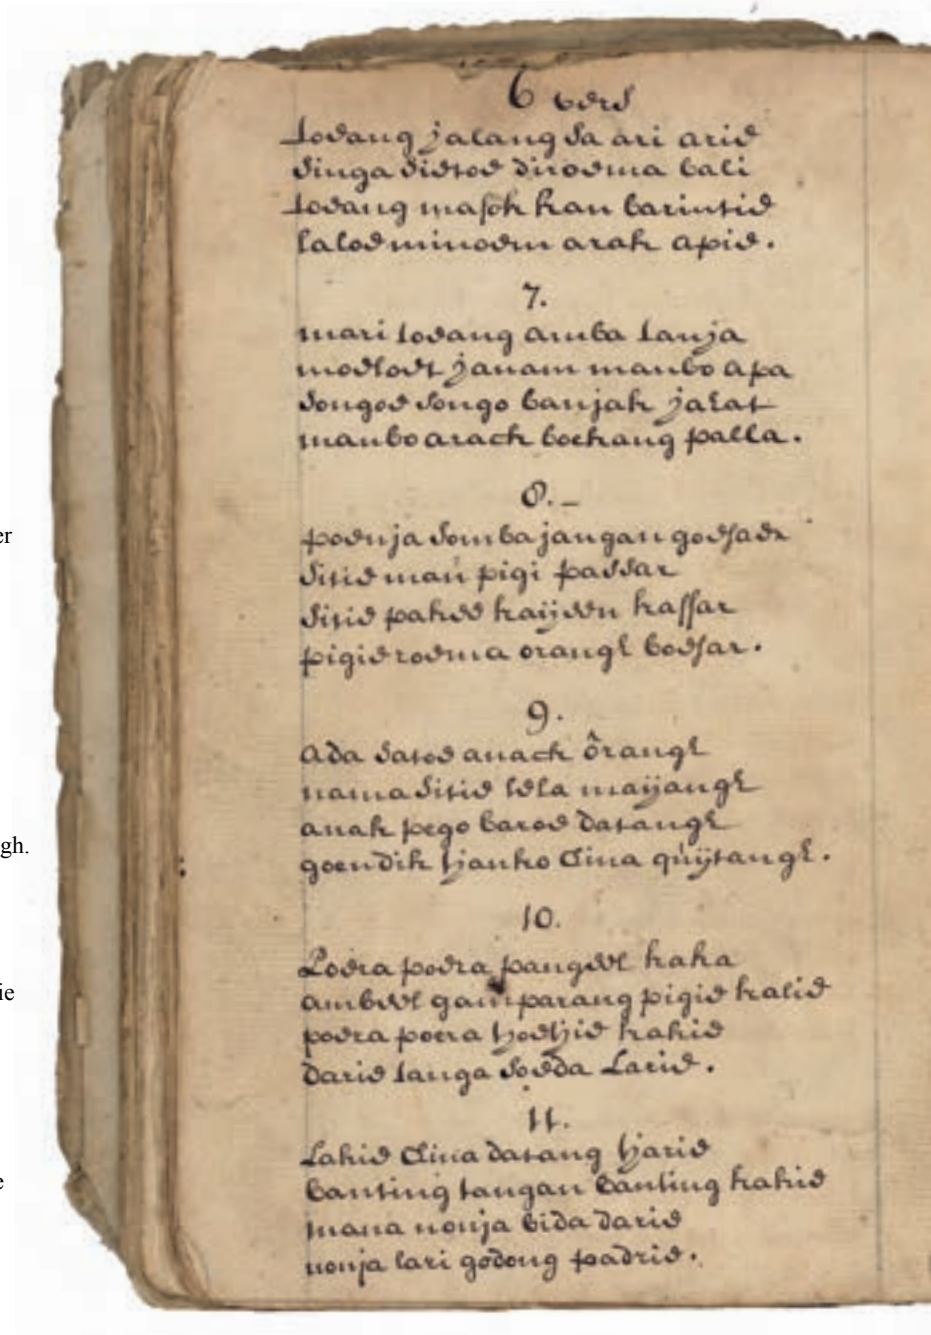 6 vers
toeang jalang sa ari arie
singa sietoe diroema bali
toeang masok kan barintie
laloe minoem arak apie.
7.
mari toeang amba tanja
moeloet janam maubo apa
songoe songo banjak jahat
maubo arach boekang palla.
8. _
poenja somba jangan goesade
sitie mau pigi passar
sitie pakee kaijeen kassar
pigie roema orangh boesar.
9.
ada satoe anach ôrangh
nama sitie lela maijangh
anak pego baroe datangh
goendik tjanko Cina quijtangh.
10.
Poera poera pangeel kaka
ambeel gamparang pigie kalie
poera poera tjoetjie kakie
darie tanga soeda Larie.
11.
Lakie Cina datang tjarie
banting tangan banting kakie
mana nonja bida darie
nonja lari godong padrie.
er
gh.
ie
e